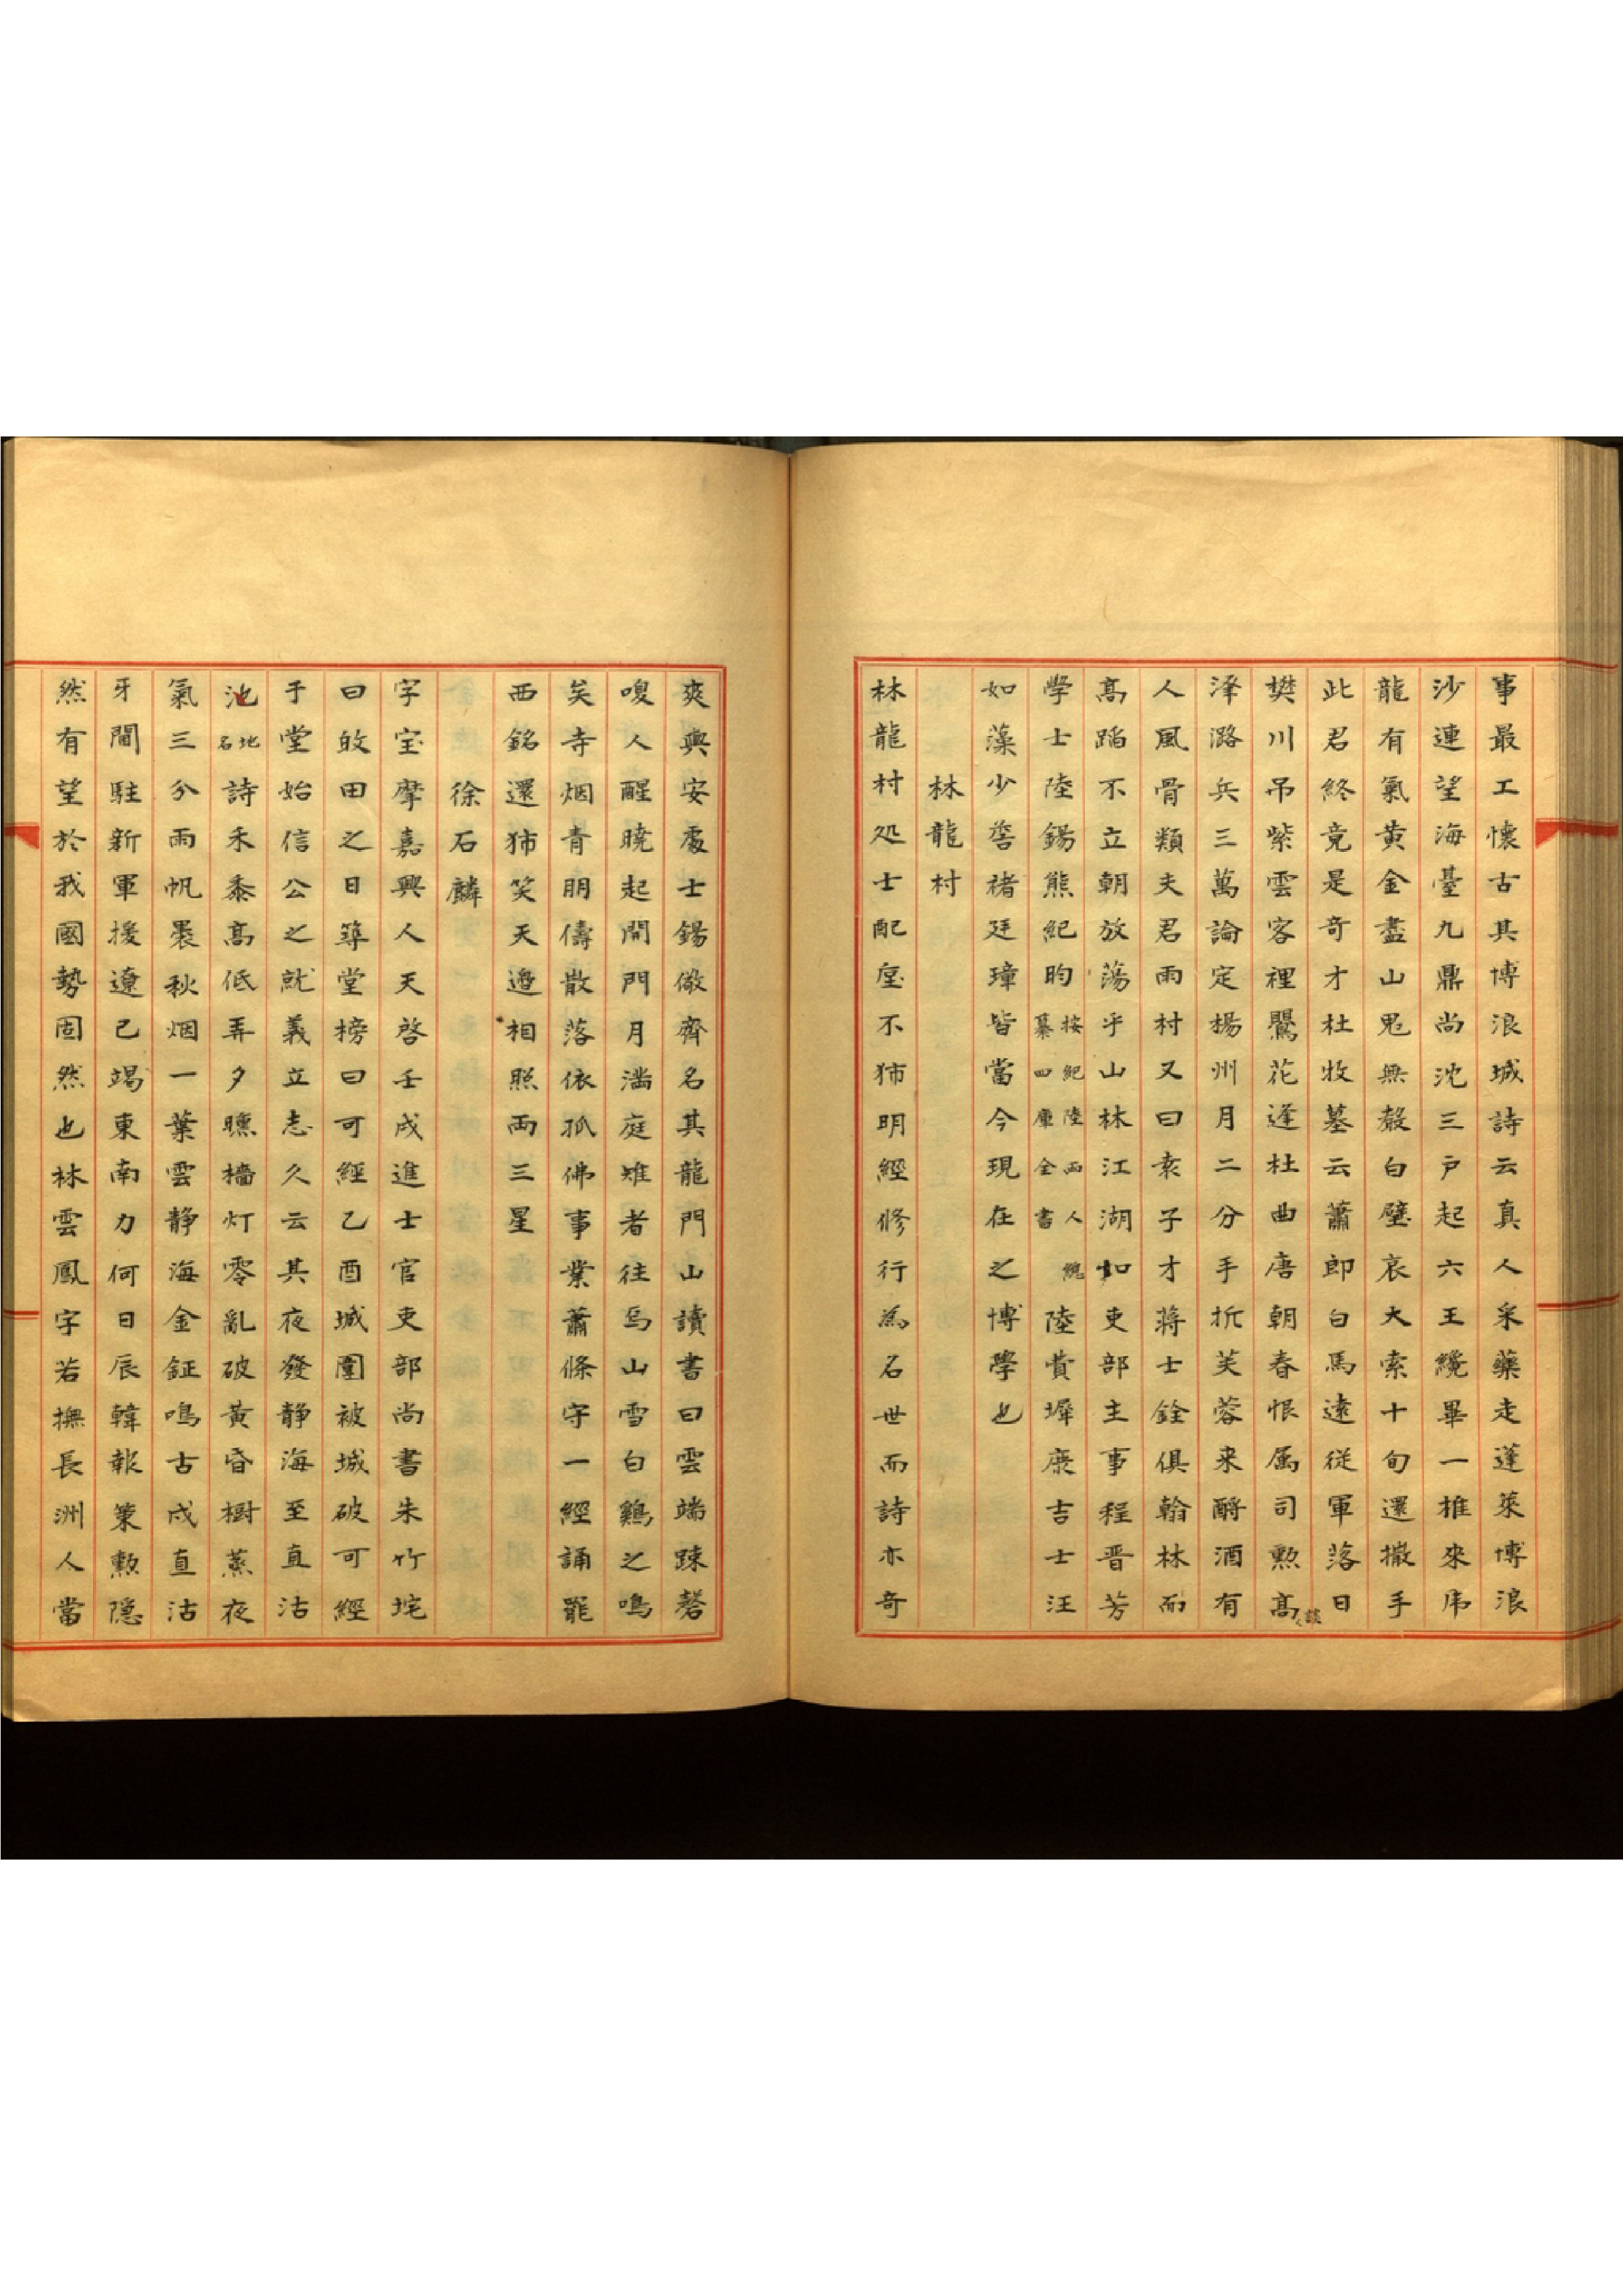 事最工懷古其博浪城詩云真人采藥走蓬萊博浪
沙連望海臺九鼎尚沈三戶起六王纔畢一椎來乕
龍有氣黄金盡山鬼無聲白璧哀大索十旬還撒手
此君終竟是奇才杜牧墓云蕭郎白馬遠従軍落日
樊川吊紫雲客裡鸎花逢杜曲唐朝春恨属司勲高談
泽潞兵三萬論定楊州月二分手折芙蓉来酹酒有
人風骨類夫君雨村又曰袁子才蒋士銓俱翰林而
髙蹈不立朝放蕩乎山林江湖如吏部主事程晋芳
學士陸錫熊紀昀按紀陸兩人總纂四庫全書陸費墀庶吉士汪
如藻少詹褚廷璋皆當今現在之博學也
林龍村
林龍村処士配垕不狋明經修行為名世而詩亦奇
爽與安處士錫儆齊名其龍門山讀書曰雲端踈磬
嗄人醒曉起開門月滿庭雉者往烏山雪白鷄之鳴
矣寺烟青朋儔散落依孤佛事業蕭條守一經誦罷
西銘還狋笑天邉相照兩三星
徐石麟
字宝摩嘉興人天啓壬戌進士官吏部尚書朱竹垞
曰攽田之日築堂榜曰可經乙酉城圍被城破可經
于堂始信公之就義立志久云其夜發静海至直沽
池地名詩禾黍髙低弄夕曛檣灯零亂破黃昏樹蒸夜
氣三分雨帆褁秋烟一葉雲静海金鉦鳴古戍直沽
牙閫駐新軍援遼已竭東南力何日辰韓報策勲隠
然有望於我國勢固然也林雲鳳字若撫長洲人當